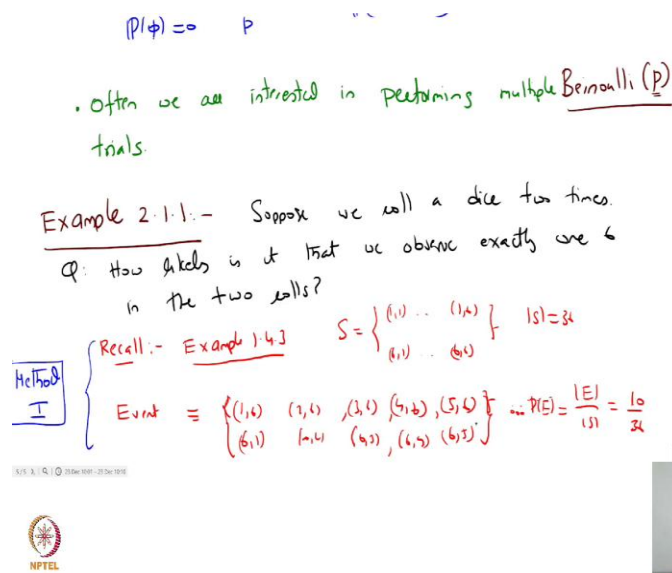 P(φ)=0 p
• Often we are interested in performing multiple Bernoulli (p)
trials.
Example 2.1.1:- Suppose we roll a dice two times.
Q: How likely is it that we observe exactly one 6
in the two rolls?
Method I
Recall:- Example 1.4.3 S = {(1,1) .. (1,6) (6,1) .. (6,6)} |S|=36
Event ≡ {(1,6) (2,6) ,(3,6) ,(4,6) ,(5,6)
(6,1) (6,3) ,(6,4) (6,5)} P(E)= |E|/|S| = 10/36
NPTEL